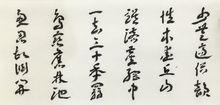 少無適俗韻
性本愛丘山
誤落塵網中
一去三十年羈
鳥戀舊林池
魚思故淵開